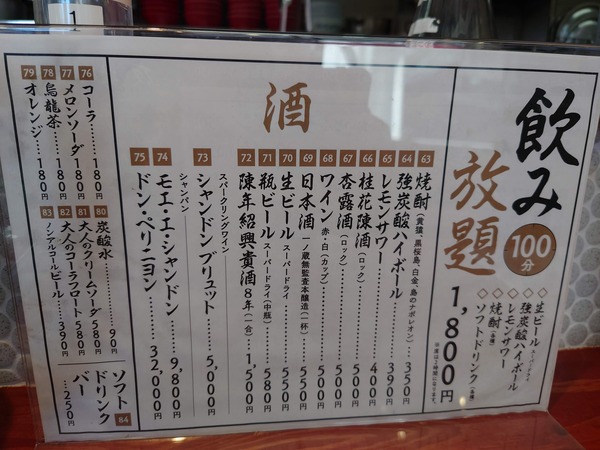 飲み
放題
100分
◇生ビール スーパードライ
◇強炭酸ハイボール
◇レモンサワー
◇焼酎(各種)
◇ソフトドリンク(各種)
1,800円
酒
63 焼酎(黄猿、黒桜島、白金、島のナポレオン)…350円
64 強炭酸ハイボール…390円
65 レモンサワー…400円
66 桂花陳酒(ロック)…500円
67 杏露酒(ロック)…500円
68 ワイン 赤・白(カップ)…500円
69 日本酒 一ノ蔵無監査本醸造(一杯)…550円
70 生ビール スーパードライ…550円
71 瓶ビール スーパードライ(中瓶)…580円
72 陳年紹興貴酒8年(一合)…1,500円
スパークリングワイン
73 シャンドン ブリュット…5,000円
シャンパン
74 モエ・エ・シャンドン…9,800円
75 ドン・ペリニヨン…32,000円
76 コーラ…180円
77 メロンソーダ…180円
78 烏龍茶…180円
79 オレンジ…180円
80 炭酸水…90円
81 大人のクリームソーダ…580円
82 大人のコーラフロート…580円
83 ノンアルコールビール…390円
84 ソフト
ドリンク
バー
…250円